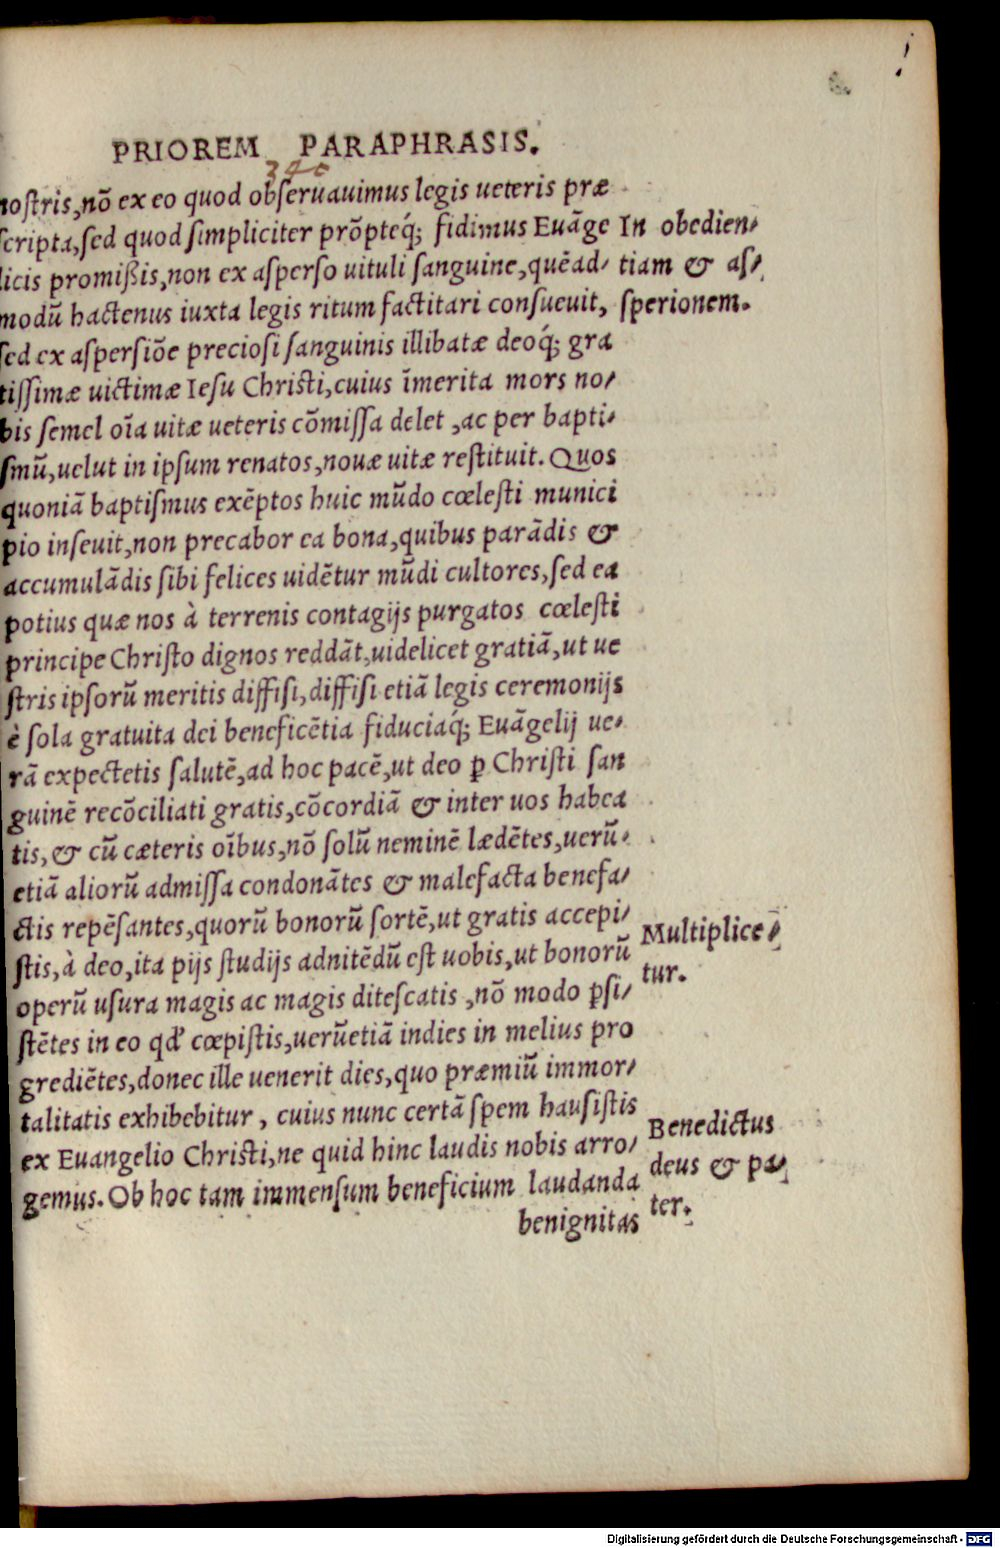 PRIOREM PARAPHRASIS.
340
nostris,nō ex eo quod obſeruauimus legis ueteris præ
ſcripta,ſed quod ſimpliciter prōpteq́; fidimus Euāge
licis promißis,non ex aſperſo uituli ſanguine,quēad/
modū hactenus iuxta legis ritum factitari conſueuit,
ſed ex aſperſiōe precioſi ſanguinis illibatæ deoq́; gra
tiſſimæ uictimæ Ieſu Chriſti,cuius īmerita mors no/
bis ſemel oīa uitæ ueteris cōmiſſa delet ,ac per bapti/
ſmū,uelut in ipſum renatos,nouæ uitæ reſtituit. Quos
quoniā baptiſmus exēptos huic mūdo cœleſti munici
pio inſeuit,non precabor ea bona,quibus parādis &
accumulādis ſibi felices uidētur mūdi cultores,ſed ea
potius quæ nos à terrenis contagijs purgatos cœleſti
principe Chriſto dignos reddāt,uidelicet gratiā,ut ue
ſtris ipſorū meritis diffiſi,diffiſi etiā legis ceremonijs
è ſola gratuita dei beneficētia fiduciaq́; Euāgelij ue/
rā expectetis ſalutē,ad hoc pacē,ut deo ꝑ Chriſti ſan
guinē recōciliati gratis,cōcordiā & inter uos habea
tis,& cū cæteris oībus,nō ſolū neminē lædētes,uerū/
etiā aliorū admiſſa condonātes & malefacta benefa/
ctis repēſantes,quorū bonorū ſortē,ut gratis accepi/
ſtis,à deo,ita pijs ſtudijs adnitēdū eſt uobis,ut bonorū
operū uſura magis ac magis diteſcatis ,nō modo ꝑſi/
ſtētes in eo qd' cœpiſtis,uerūetiā indies in melius pro
grediētes,donec ille uenerit dies,quo præmiū immor/
talitatis exhibebitur , cuius nunc certā ſpem hauſiſtis
ex Euangelio Chriſti,ne quid hinc laudis nobis arro/
gemus. Ob hoc tam immenſum beneficium laudanda
benignitas
In obedien/
tiam & aſ/
ſperionem.
Multiplice/
tur.
Benedictus
deus & pa/
ter.
Digitalisierung gefördert durch die Deutsche Forschungsgemeinschaft - DFG